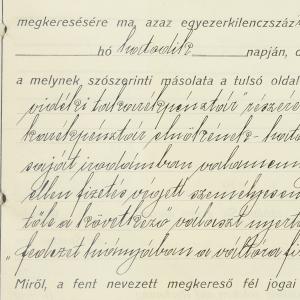 megkeresésére ma, azaz egyezerkilenczszáz
hó hatodik napján, d
a melynek szószerinti másolata a tulsó oldal
vidéki takarékpénztár" részére
karékpénztár elnökének - hata
saját irodámban valamenn
ellen fizetés végett személyesen
tőle a következő választ nyerte
„fedezet hiányában a váltóra fi
Miről, a fent nevezett megkereső fél jogai